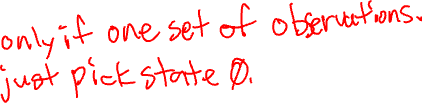 only if one set of observations.
just pick state 0.